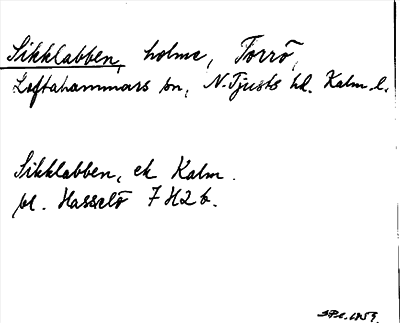 Sikklabben, holme, Torrö,
Loftahammars sn, N. Tjusts hd. Kalm. l.
Sikklabben, ek Kalm.
bl. Hasselö 7 H2 b.